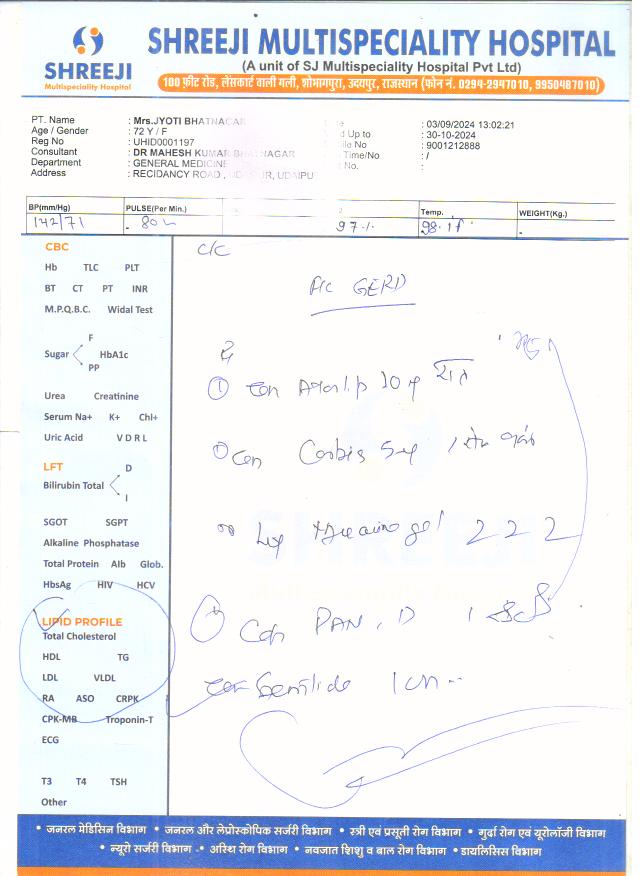 SHREEJI MULTISPECIALITY HOSPITAL
SHREEJI
Multispeciality Hospital
(A unit of SJ Multispeciality Hospital Pvt Ltd)
100 फ़ीट रोड, लेंसकार्ट वाली गली, शोभागपुरा, उदयपुर, राजस्थान (फोन नं. 0294-2947010, 9950487010)
PT. Name : Mrs.JYOTI BHATNAGAR : 03/09/2024 13:02:21
Age / Gender : 72 Y / F Up to : 30-10-2024
Reg No : UHID0001197 No : 9001212888
Consultant : DR MAHESH KUMAR BHATNAGAR Time/No : /
Department : GENERAL MEDICINE No. :
Address : RECIDANCY ROAD , UDAIPUR, UDAIPU
BP(mm/Hg) PULSE(Per Min.) Temp. WEIGHT(Kg.)
142/71 80 97 % 98.1f
CBC
C/C
Hb TLC PLT
BT CT PT INR
GERD
M.P.Q.B.C. Widal Test
F
Sugar HbA1c
PP
10 रात
Urea Creatinine
Serum Na+ K+ Chl+
Uric Acid V D R L
5
LFT D
Bilirubin Total
I
SGOT SGPT
gel 2 2 2
Alkaline Phosphatase
Total Protein Alb Glob.
HbsAg HIV HCV
LIPID PROFILE
PAN . D 1
Total Cholesterol
HDL TG
LDL VLDL
1
RA ASO CRPK
CPK-MB Troponin-T
ECG
T3 T4 TSH
Other
• जनरल मेडिसिन विभाग • जनरल और लेप्रोस्कोपिक सर्जरी विभाग • स्त्री एवं प्रसूती रोग विभाग • गुर्दा रोग एवं यूरोलॉजी विभाग
• न्यूरो सर्जरी विभाग • अस्थि रोग विभाग • नवजात शिशु व बाल रोग विभाग • डायलिसिस विभाग